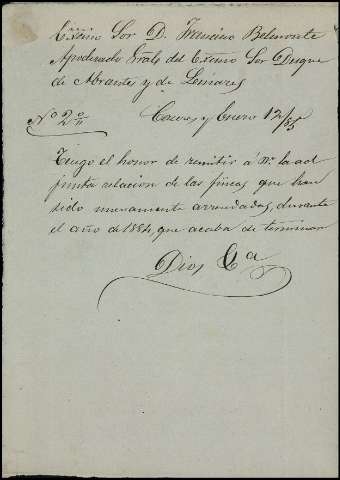 Exmo Sor D. Francisco Belmonte
Apoderado Gral del Exmo Sor Duque
de Abrantes y de Linares
No 2o Caceres y Enero 12/85
Tengo el honor de remitir á V. la ad
junta relacion de las fincas que han
sido nuevamente arrendadas, durante
el año de 1884 que acaba de terminar
Dios Ga